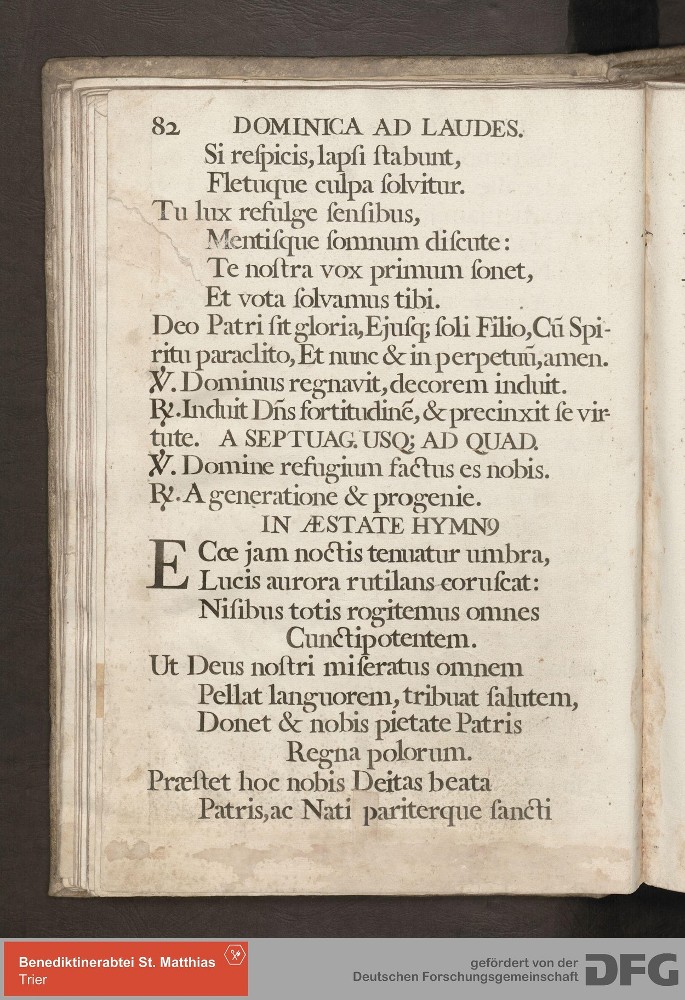 82 DOMINICA AD LAUDES.
Si reſpicis, lapſi ſtabunt,
Fletuque culpa ſolvitur.
Tu lux refulge ſenſibus,
Mentiſque ſomnum diſcute:
Te noſtra vox primum ſonet,
Et vota ſolvamus tibi.
Deo Patri ſit gloria, Ejuſq; ſoli Filio, Cū Spi-
ritu paraclito, Et nunc & in perpetuū, amen.
℣. Dominus regnavit, decorem induit.
℟. Induit Dñs fortitudinē, & precinxit ſe vir-
tute. A SEPTUAG. USQ; AD QUAD.
℣. Domine refugium factus es nobis.
℟. A generatione & progenie.
IN ÆSTATE HYMNꝰ
ECce jam noctis tenuatur umbra,
Lucis aurora rutilans coruſcat:
Niſibus totis rogitemus omnes
Cunctipotentem.
Ut Deus noſtri miſeratus omnem
Pellat languorem, tribuat ſalutem,
Donet & nobis pietate Patris
Regna polorum.
Præſtet hoc nobis Deitas beata
Patris, ac Nati pariterque ſancti
Benediktinerabtei St. Matthias
Trier
gefördert von der
Deutschen Forschungsgemeinschaft
DFG